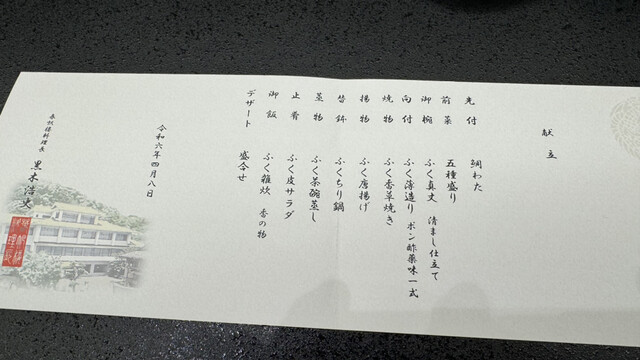 献立
先付 鯛わた
前菜 五種盛り
御椀 ふく真丈 清まし仕立て
向付 ふく薄造り ポン酢薬味一式
焼物 ふく香草焼き
揚物 ふく唐揚げ
台鉢 ふくちり鍋
蒸物 ふく茶碗蒸し
止肴 ふく皮サラダ
御飯 ふく雑炊 香の物
デザート 盛合せ
令和六年四月八日
春帆楼料理長
黒木浩史